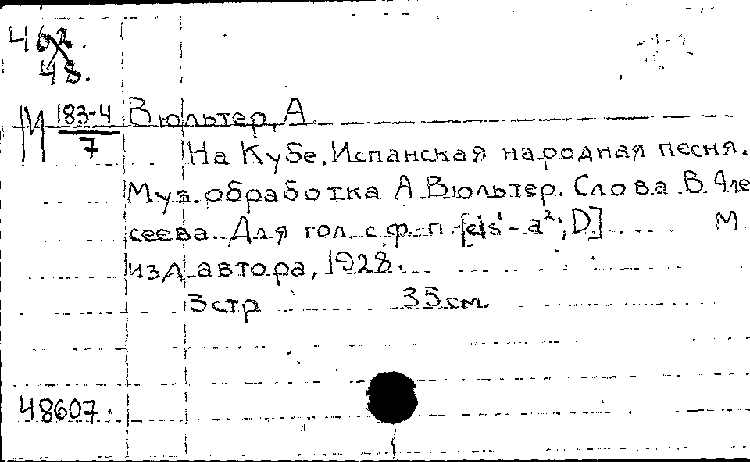 462.
48.
М 183-4/7 Вюльтер, А
На Кубе. Испанская народная песня.
Муз. обработка А. Вюльтер. Слова В. Але
сеева. Для гол. с ф-п. [cis¹-a²; D] М
изд автора, 1928.
3 стр 35 см.
48607.